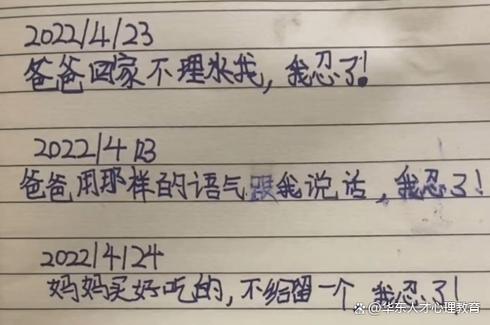 2022/4/23
爸爸回家不理水我，我忍了！
2022/4/23
爸爸用那样的语气跟我说话，我忍了！
2022/4/24
妈妈买好吃的，不给留一个 我忍了！
华东人才心理教育